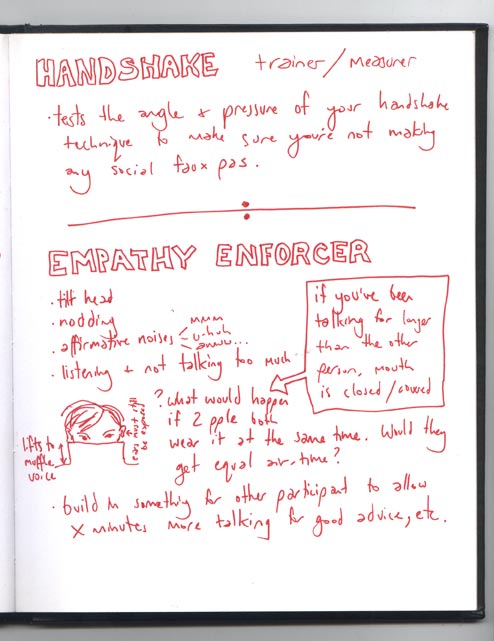 HANDSHAKE trainer/measurer
· tests the angle + pressure of your handshake
technique to make sure you're not making
any social faux pas.
EMPATHY ENFORCER
· tilt head
· nodding
· affirmative noises
mmm
u-huh
awww...
· listening + not talking too much
if you've been
talking for longer
than the other
person, mouth
is closed/covered
? what would happen
if 2 pple both
wear it at the same time. Would they
get equal air-time?
lifts to
muffle
voice
ears must still
be uncovered
· build in something for other participant to allow
X minutes more talking for good advice, etc.